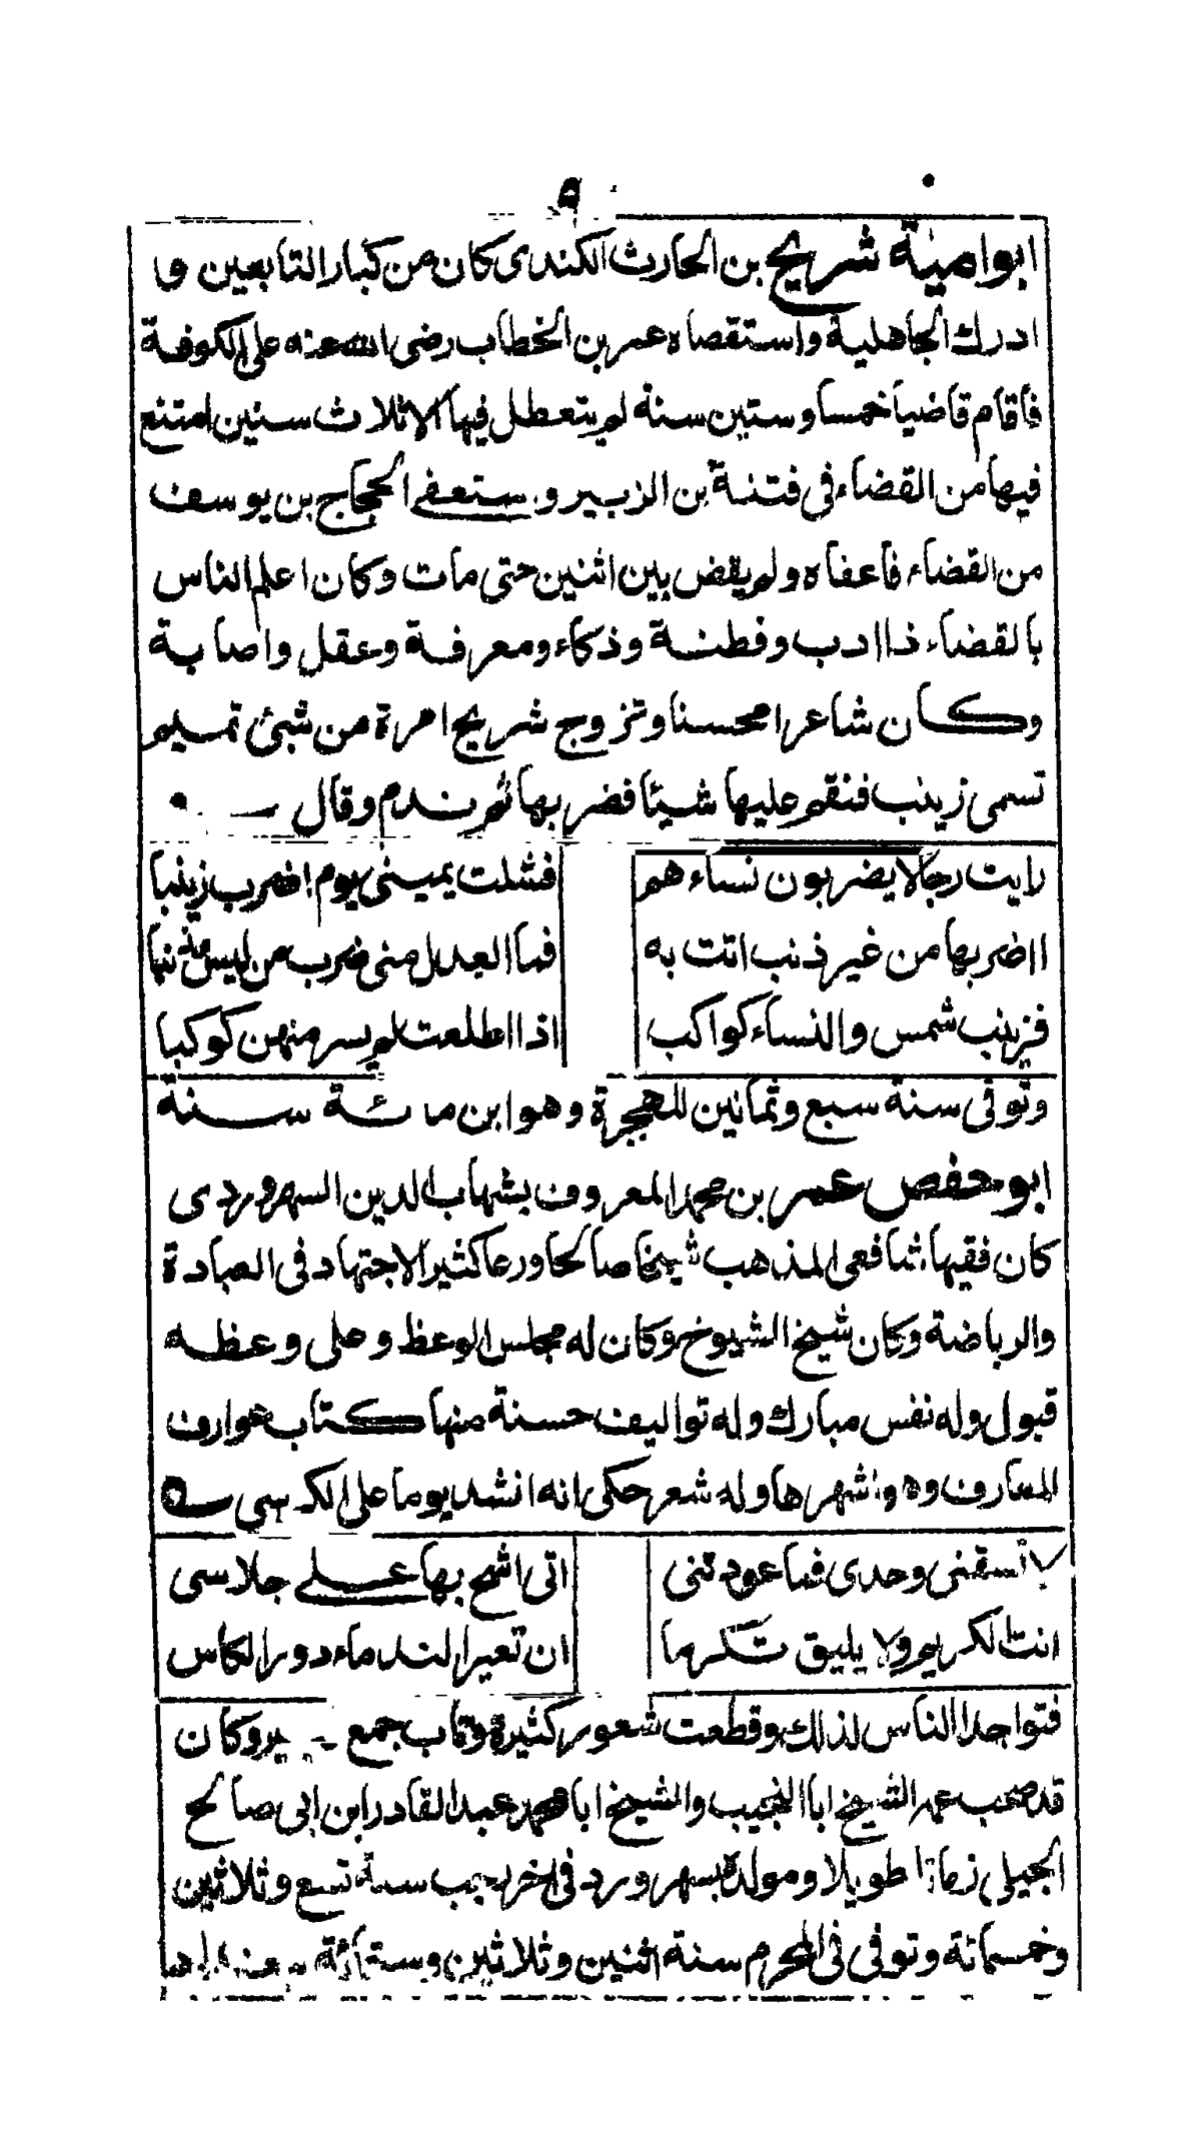 ٩
ابو امية شريح بن الحارث الكندى كان من كبار التابعين و
ادرك الجاهلية واستقضاه عمر بن الخطاب رضى الله عنه على الكوفة
فأقام قاضيا خمسا وستين سنة لم يتعطل فيها الا ثلاث سنين امتنع
فيها من القضاء فى فتنة بن الزبير و ستعفى الحجاج بن يوسف
من القضاء فأعفاه ولم يقض بين اثنين حتى مات وكان اعلم الناس
بالقضاء ذا ادب وفطنة وذكاء ومعرفة وعقل واصابة
وكان شاعرا محسنا وتزوج شريح امرة من تميم
تسمى زينب فنقم عليها شيئا فضربها ثم ندم وقال
رايت رجالا يضربون نساءهم فشلت يمينى يوم اضرب زينبا
ااضربها من غير ذنب اتت به فما العدل منى ضرب من ليس مذنبا
فزينب شمس والنساء كواكب اذا اطلعت لم يسر منهن كوكبا
وتوفى سنة سبع وثمانين للهجرة وهو ابن مائة سنة
ابو حفص عمر بن محمد المعروف بشهاب الدين السهروردى
كان فقيها شافعى المذهب شيخا صالحا ورعا كثير الاجتهاد فى العبادة
والرياضة وكان شيخ الشيوخ وكان له مجلس الوعظ وعلى وعظه
قبول وله نفس مبارك وله تواليف حسنة منها كتاب عوارف
المعارف وهو اشهرها وله شعر حكى انه انشد يوما على الكرسى
لا تسقنى وحدى فما عودتنى انى اشح بها على جلاسى
انت الكريم ولا يليق تكرما ان تعير الندماء دور الكاس
فتواجد الناس لذلك وقطعت شعور كثيرة وتاب جمع وكان
قد صحب عمه الشيخ ابا النجيب والشيخ ابا محمد عبد القادر ابن ابى صالح
الجيلى زمانا طويلا ومولده بسهرورد فى اخر رجب سنة تسع وثلاثين
وخمسمائة وتوفى فى المحرم سنة اثنين وثلاثين وستمائة